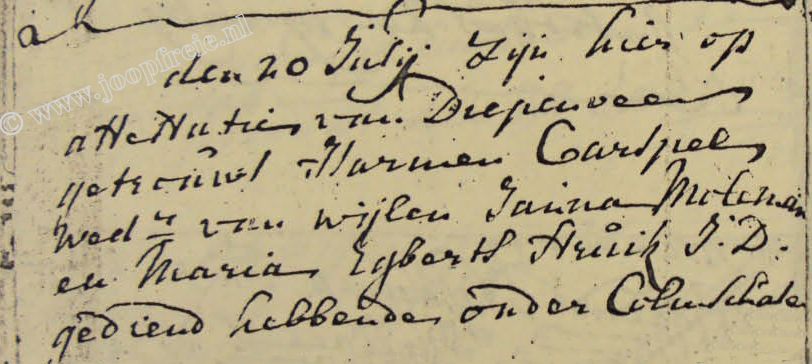 © www.joopfreie.nl
den 20 Julij zijn hier op
attestatie van Diepenveen
getrouwt Harmen Carspel
Wedr van wijlen Janna Moleman
en Maria Egberts Struik J.D.
gediend hebbende onder Colmschate